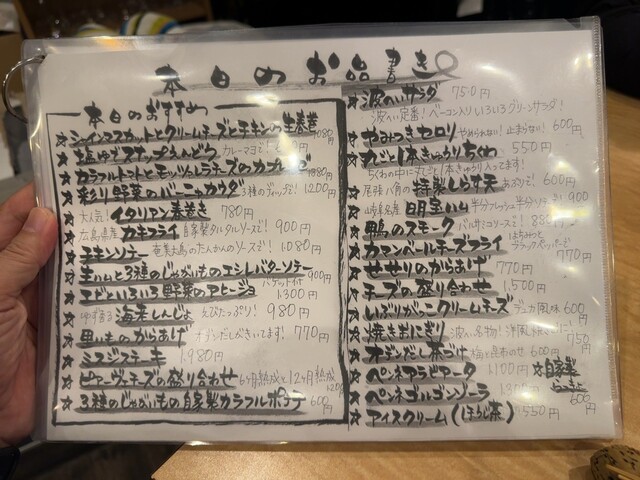 本日のお品書き
本日のおすすめ
☆シャインマスカットとクリームチーズとチキンの生春巻 1080円
☆塩ゆでスナップえんどう カレーマヨで!
☆カラフルトマトとモッツァレラチーズのカプレーゼ 1080円
☆彩り野菜のバーニャカウダ 3種のディップで! 1200円
☆大人気!イタリアン春巻き 780円
☆広島県産 カキフライ 自家製タルタルソースで! 900円
☆チキンソテー 奄美大島のたんかんのソースで! 1.080円
☆生ハムと3種のじゃがいものアンチョビバターソテー 900円
☆エビといろいろ野菜のアヒージョ バゲット付 1300円
☆ゆず香る 海老しんじょ えびたっぷり! 980円
☆里いものからあげ オデンだしがきいてます! 770円
☆ミスジステーキ 1.980円
☆ピアーヴェチーズの盛り合わせ 6ヶ月熟成と12ヶ月熟成 1200円
☆3種のじゃがいもの自家製カラフルポテチ 600円
☆波へいサラダ 750円
波へい定番!ベーコン入りいろいろグリーンサラダ!
☆やみつきセロリ やめられない!止まらない! 600円
☆丸ごと1本きゅうりちくわ 550円
ちくわの中に丸ごと1本きゅうり入ってます!
☆尾張八角の 特製しらす天 あおぶりで! 600円
☆岐阜名産 明宝ハム 半分フレッシュ 半分ソテー 900円
☆鴨のスモーク バルサミコソースで!
☆カマンベールチーズフライ はちみつとブラックペッパーで 770円
☆せせりのからあげ 770円
☆チーズの盛り合わせ 1.500円
☆いぶりがっこクリームチーズ デュカ風味 600円
☆焼きおにぎり 波へい名物! 750円
☆オデンだし茶づけ 梅と昆布のせ 600円
☆ペンネアラビアータ 1.100円
☆自家製 600円
☆ペンネゴルゴンゾーラ 1.300円
☆アイスクリーム(ほうじ茶) 550円